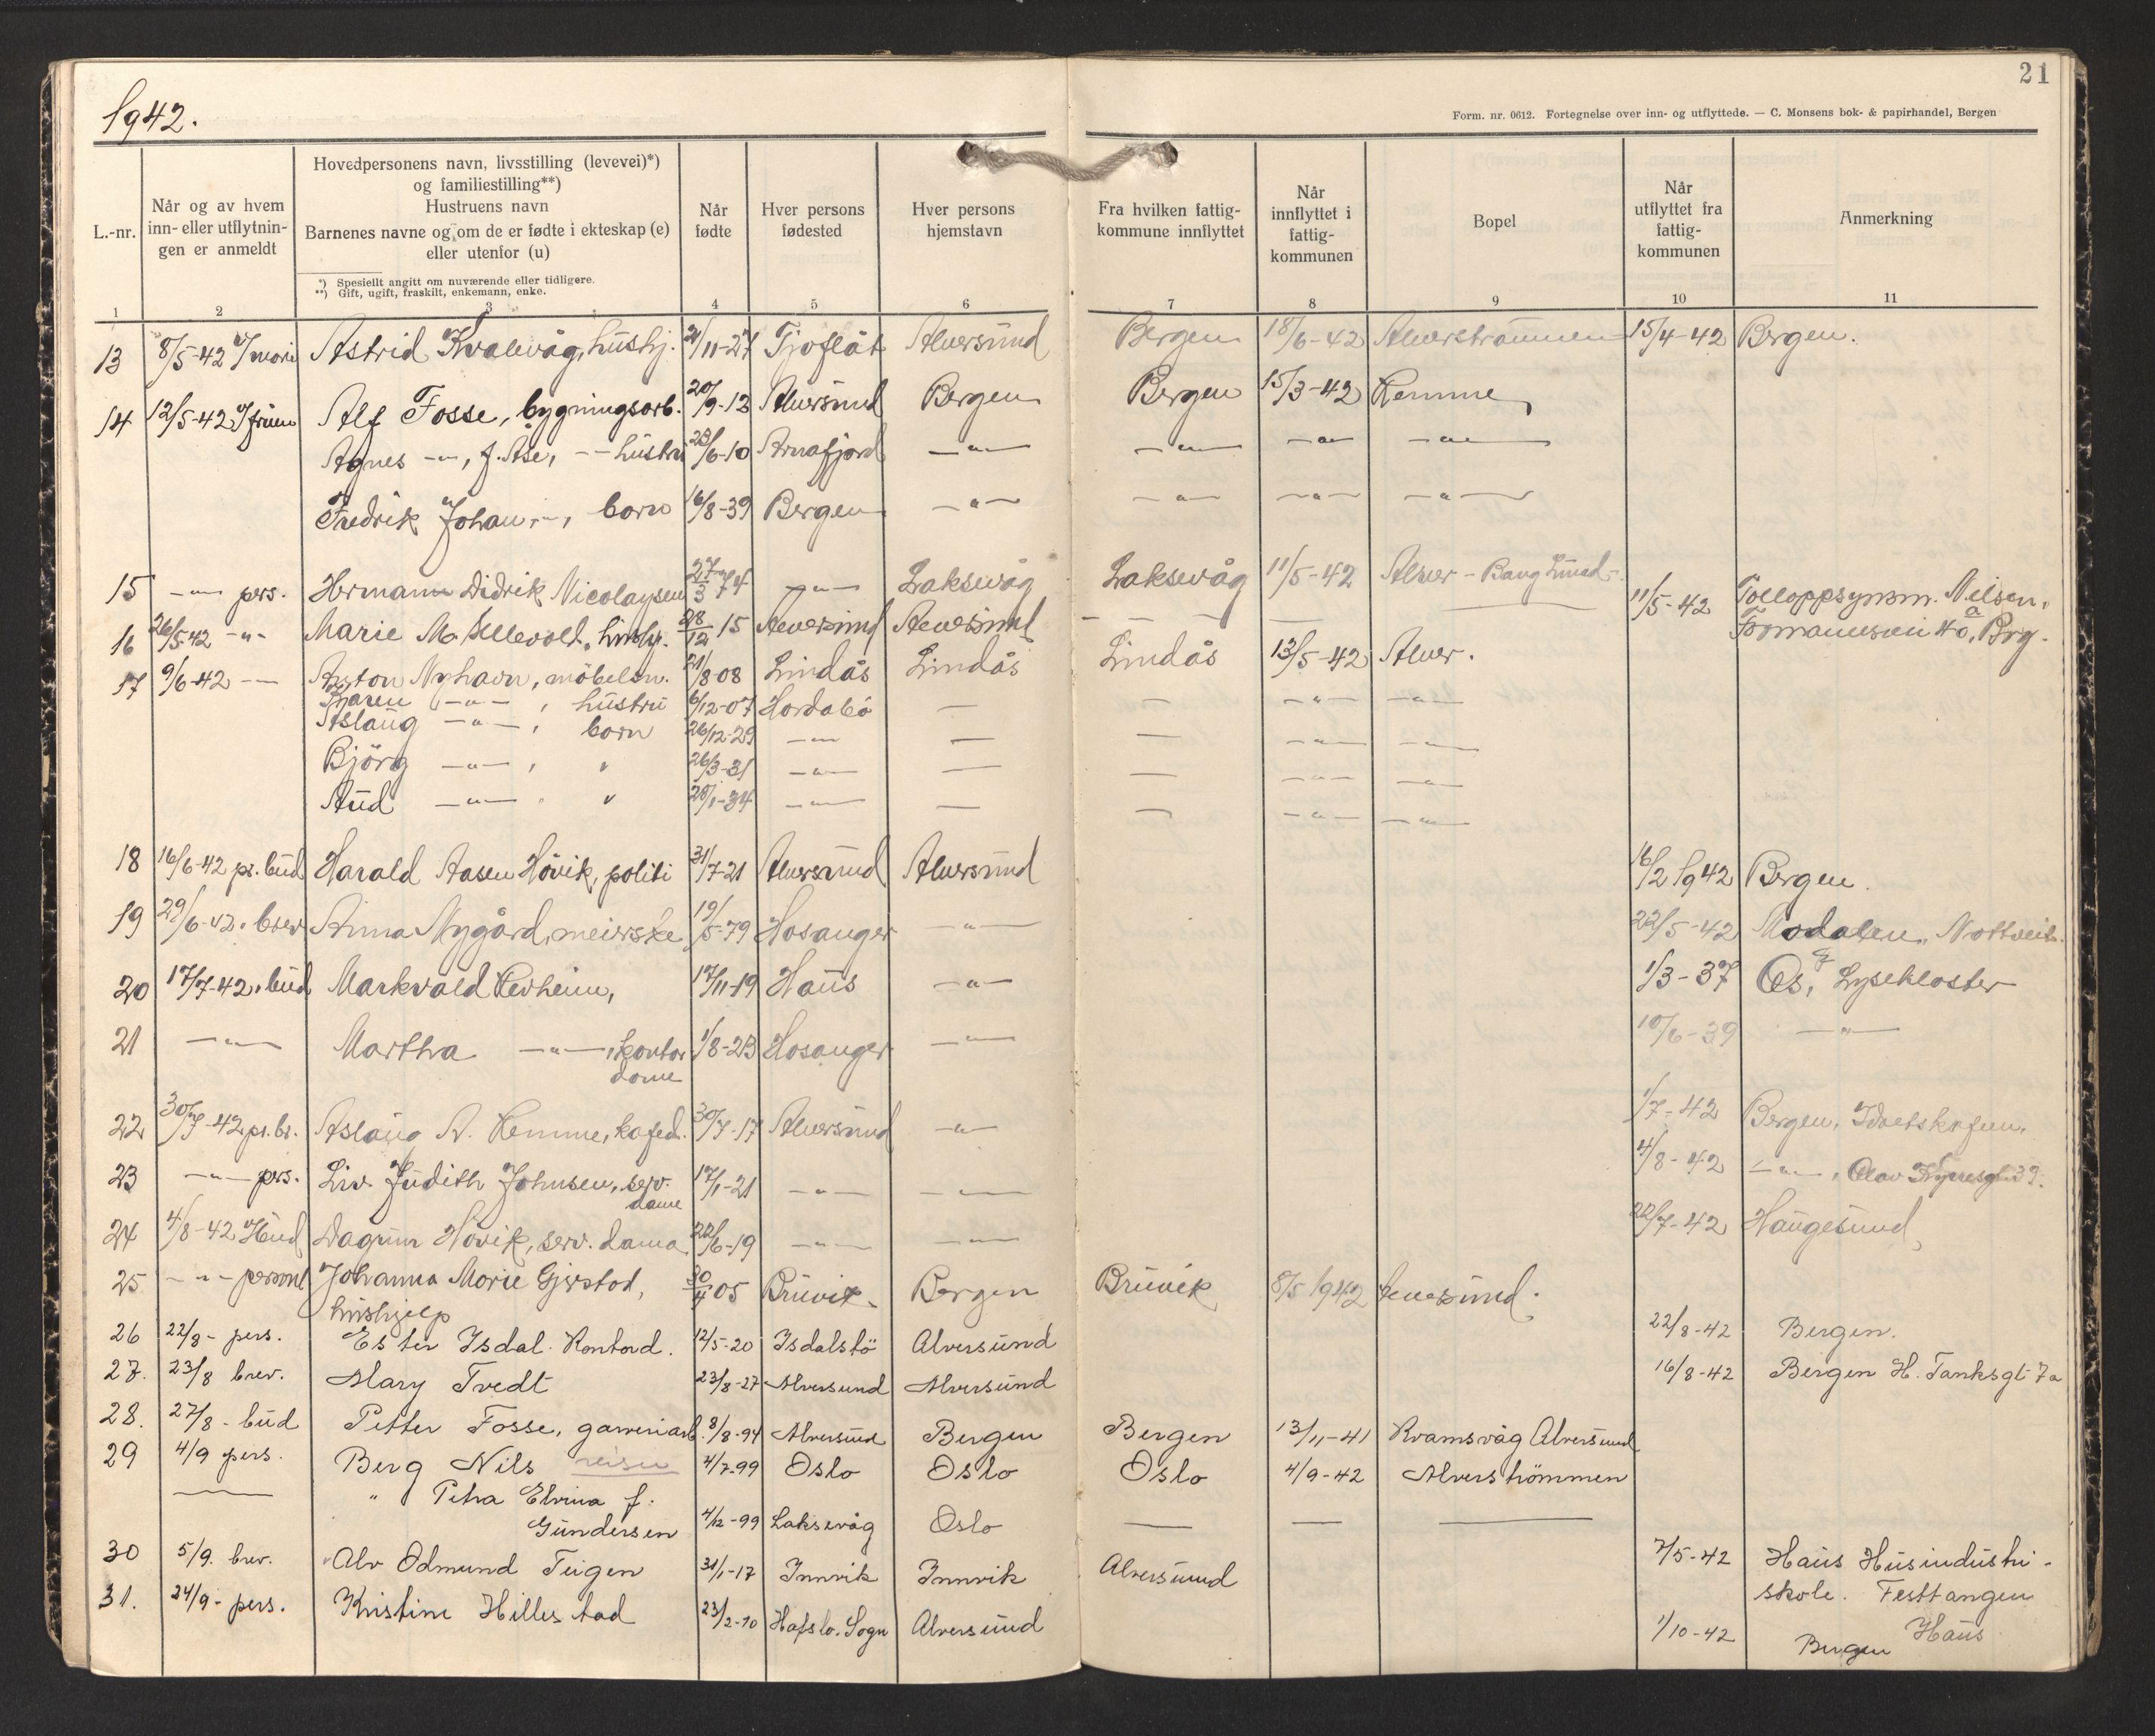 21
1942.
Form. nr. 0612. Fortegnelse over inn- og utflyttede. — C. Monsens bok- & papirhandel, Bergen
L.-nr.
Når og av hvem
inn- eller utflytnin-
gen er anmeldt
Hovedpersonens navn, livsstilling (levevei)*)
og familiestilling**)
Hustruens navn
Barnenes navne og om de er fødte i ekteskap (e)
eller utenfor (u)
*) Spesiellt angitt om nuværende eller tidligere.
**) Gift, ugift, fraskilt, enkemann, enke.
Når
fødte
Hver persons
fødested
Hver persons
hjemstavn
Fra hvilken fattig-
kommune innflyttet
Når
innflyttet i
fattig-
kommunen
Bopel
Når
utflyttet fra
fattig-
kommunen
Anmerkning
1 2 3 4 5 6 7 8 9 10 11
13 8/5-42 Astrid Kvalevåg, hushj. 21/11-27 Tjoflåt Alversund Bergen 18/6-42 Alverstraumen 15/4-42 Bergen.
14 12/5-42 Alf Fosse, bygningsarb. 20/9-13 Alversund Bergen Bergen 15/3-42 Hemme
Agnes -"-, f. Åse, -- hustru 23/6-10 Arnafjord -"- -"- -"- -"-
Fredrik Johan, -, born 16/8-39 Bergen -"- -"- -"- -"-
15 -"- pers. Hermann Didrik Nicolaysen 27/3 74 -"- Laksevåg Laksevåg 11/5-42 Alver -
16 26/5-42 -"- Marie M. Hellevolt, hushj. 28/12 15 Alversund Alversund 11/5-42 Tolloppsynsm. Nilsen,
Formannsvei 40a, Brg.
17 9/6-42 — Anton Nyhavn, möbelsn. 21/8-08 Lindås Lindås Lindås 13/5-42 Alver.
Karen -"-, hustru 6/12-07 Hordabö — — -"- -"-
Aslaug -"-, born 26/12-29 -"- — — -"- -"-
Björg -"-, " 26/3-31 -"- — — -"- -"-
Aud -"- " 28/1-34 -"- — — -"- -"-
18 16/6-42 pr. bud Harald Aasen Hövik, politi 31/7-21 Alversund Alversund 16/2 1942 Bergen.
19 29/6-42 " brev Anna Nygård, meierske 19/5-79 Hosanger -"- 22/5-42 Modalen, Nottveit.
20 17/7-42 " bud Markvald Hevheim, 17/11-19 Haus -"- 1/3-37 Os, Lysekloster
21 -"- Martha -"-, kontor 1/8-23 Hosanger -"- 10/6-39 -"-
dame
22 30/7-42 pr. br. Aslaug N. Hemme, kafed. 30/7-17 Alversund -"- 1/7-42 Bergen, Idrettskafeen.
23 -"- prs. Liv Judith Johnsen, serv. 17/1-21 -"- -"- 4/8-42 -"-, Olav Kyrresgt 39.
dame
24 4/8-42 Dagrun Hövik, serv. dama 22/6-19 -"- -"- 22/7-42 Haugesund,
25 -"- personl Johanna Marie Gjerstad, 30/4 05 Bruvik Bergen Bruvik 8/5 1942 Alversund.
hushjelp
26 22/8- pers. Ester Isdal. Kontord. 12/5-20 Isdalstö Alversund 22/8-42 Bergen.
27. 23/8 brev. Mary Tvedt 23/8-27 Alversund Alversund 16/8-42 Bergen H. Tanksgt 7a
28. 27/8- bud Petter Fosse, garveriarb. 8/8-94 Alversund Bergen Bergen 13/11-41 Kvamsvåg Alversund
29 4/9 pers. Berg Nils 4/7-99 Oslo Oslo Oslo 4/9-42 Alverströmmen
— " Petra Elvina f.
Gundersen 4/12-99 Laksevåg Oslo — — —
30 5/9. brev. Alv Odmund Teigen 31/1-17 Innvik Innvik Alversund 7/5-42 Haus Husindustri-
skole. Festtangen
Haus
31. 24/9- pers. Kristine Hillestad 23/2-10 Hafslo. Sogn Alversund 1/10-42 Bergen